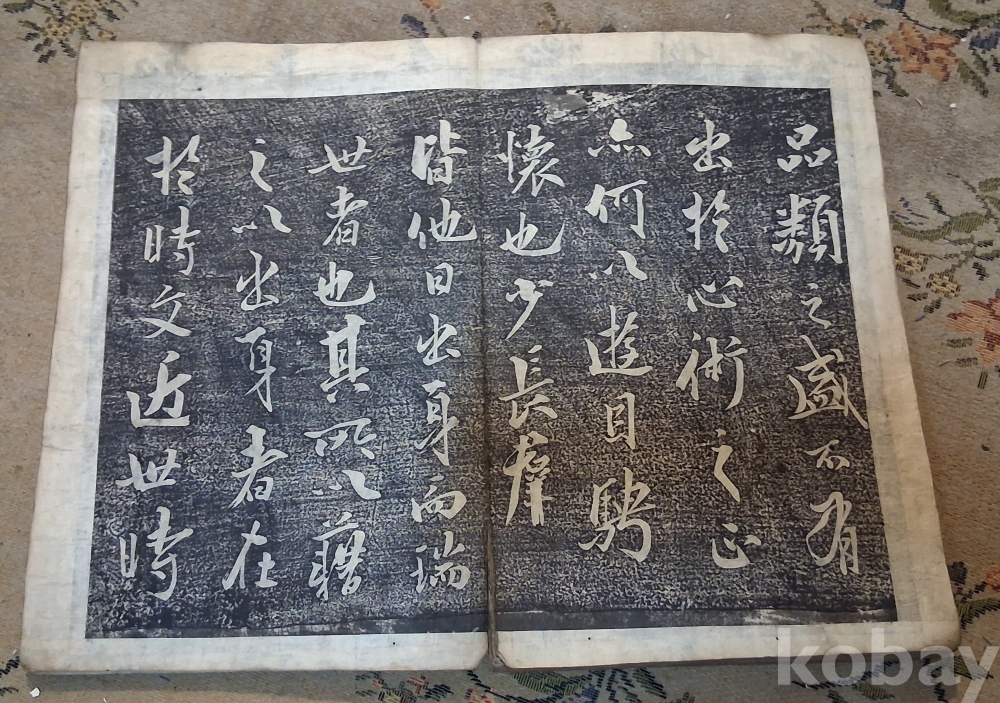 品類之盛不有
出於心術之正
亦何以遊目騁
懷也少長羣
皆他日出身而瑞
世者也其所以藉
之以出身者在
於時文近世時
kobay